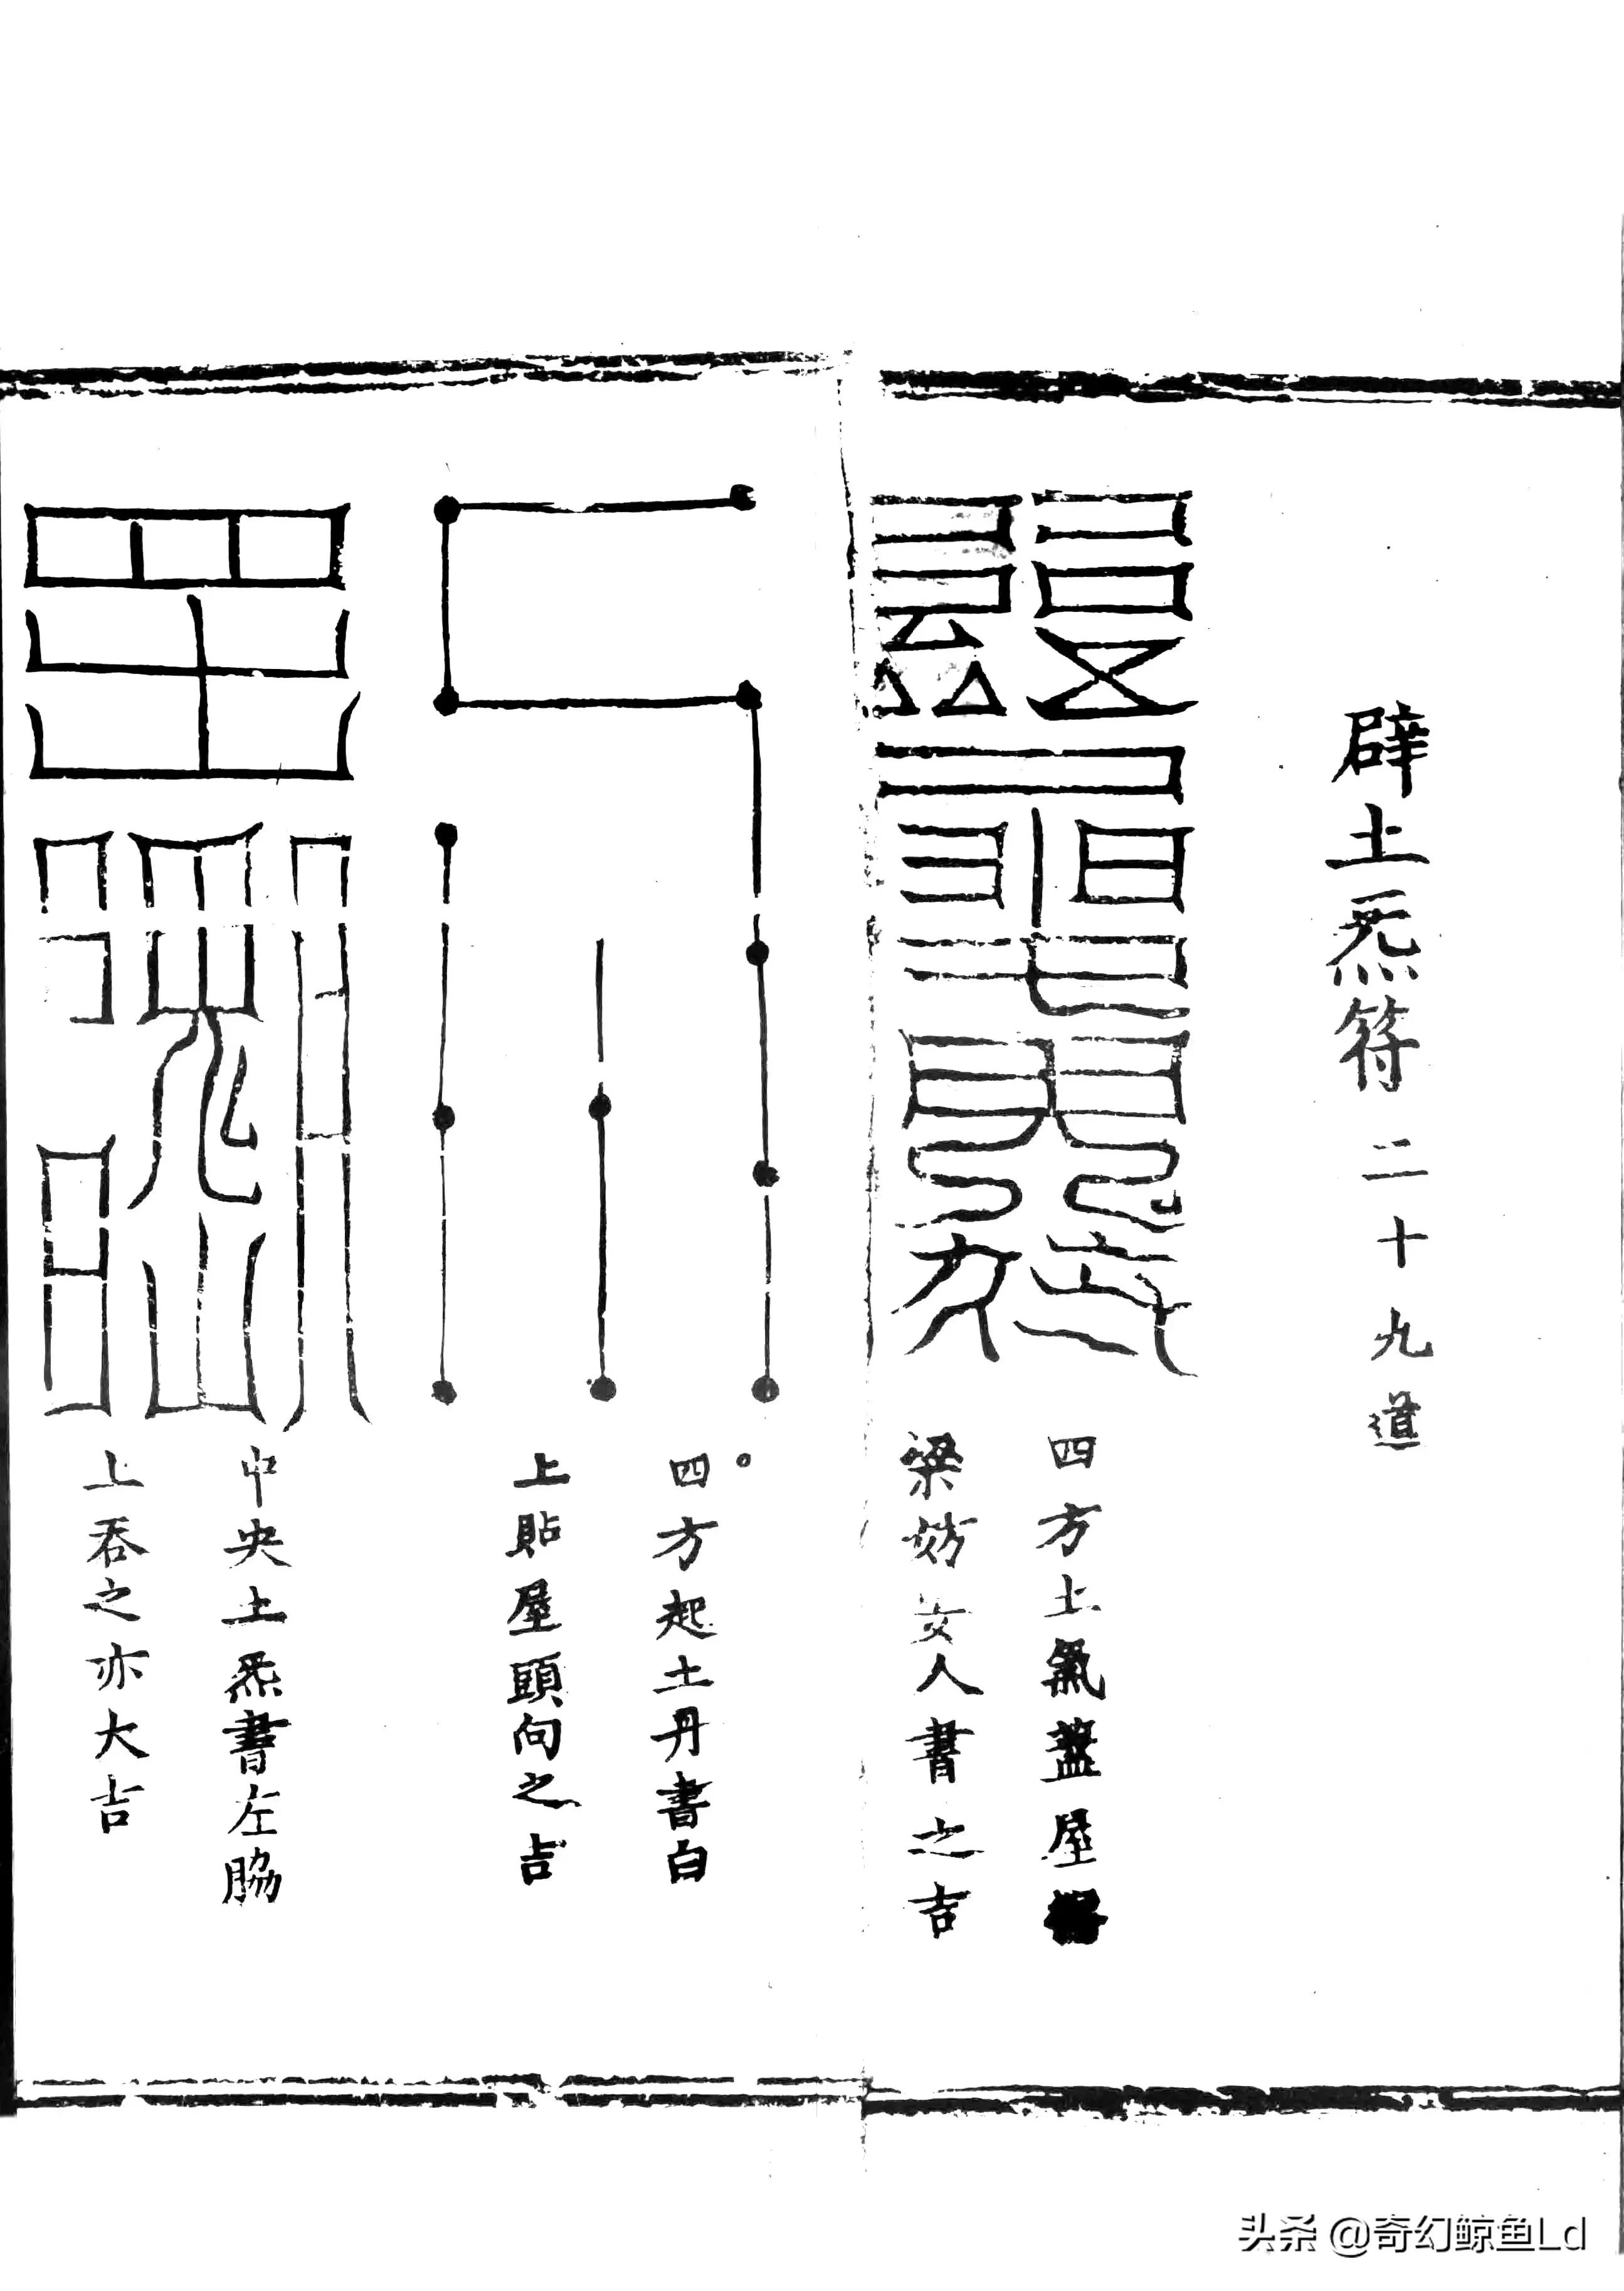 辟土炁符二十九道
四方土氣盤屋
梁妨女人書之吉
四方起土丹書白
上貼屋頭向之吉
中央土炁書左脇
上吞之亦大吉
头条 @奇幻鲸鱼Ld